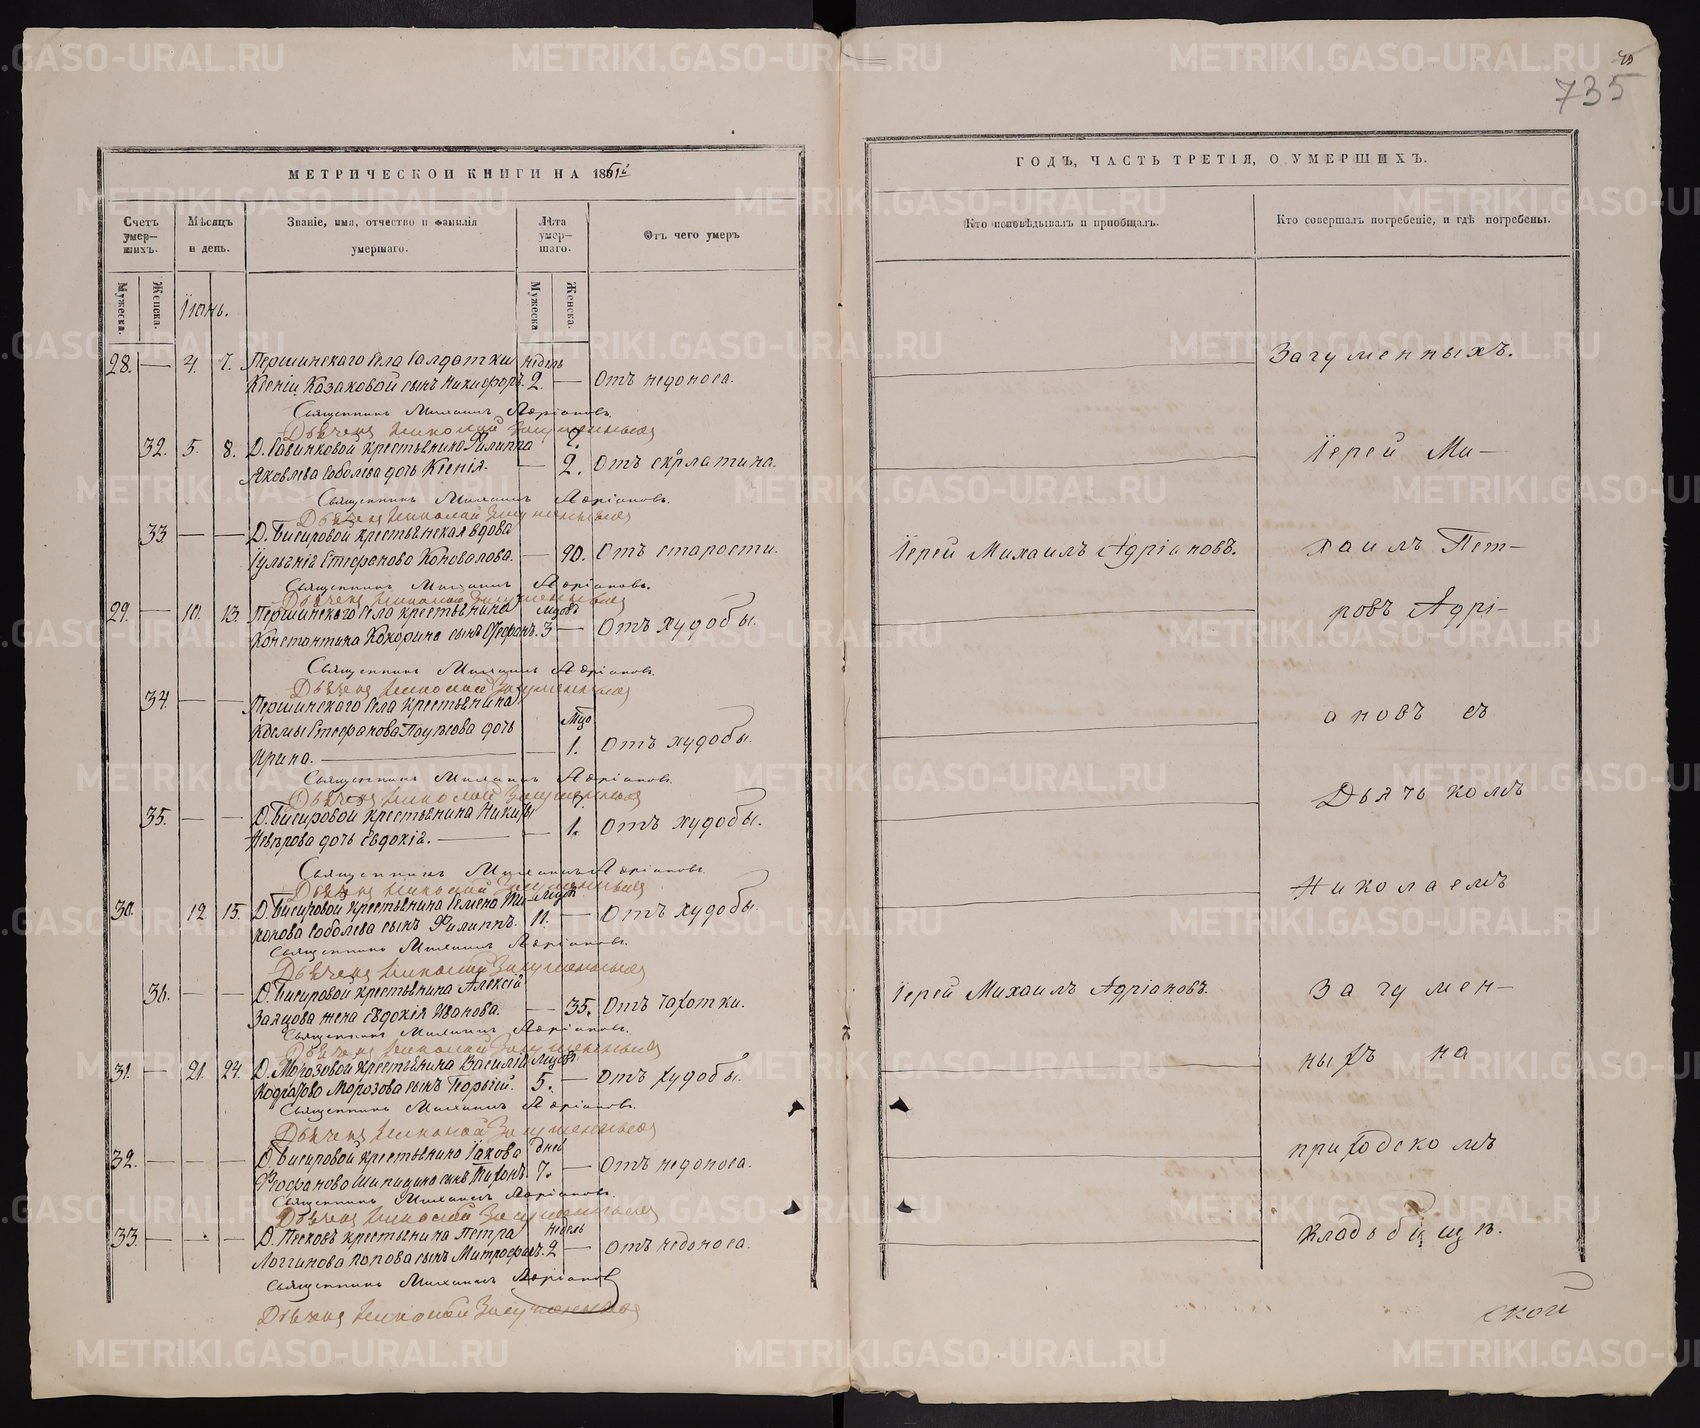 735
МЕТРИЧЕСКОЙ КНИГИ НА 1861й
Счетъ умер-шихъ.
Мѣсяцъ и день.
Званіе, имя, отчество и фамилія умершаго.
Лѣта умер-шаго.
Отъ чего умеръ
Мужеска.
Женска.
Мужеска
Женска.
Іюнь.
28. — 4. 7. Першинскаго села Солдатки недель
Ксеніи Казаковой сынъ Никифоръ. 2. — Отъ недоноса.
Священникъ Михаилъ Адріановъ.
Дьячекъ Николай Загуменныхъ
32. 5. 8. Д. крестьянина Филиппа
Яковлева Соболева дочь Ксенія. — 2. Отъ скрлатина.
Священникъ Михаилъ Адріановъ.
Дьячекъ Николай Загуменныхъ
33. — — Д. Бисеровой крестьянская вдова
Стефанова Коновалова. — 90. Отъ старости.
Священникъ Михаилъ Адріановъ.
Дьячекъ Николай Загуменныхъ
29. — 10. 13. Першинскаго села крестьянина мцовъ
Константина Кокорина сынъ. 3 — Отъ худобы.
Священникъ Михаилъ Адріановъ
Дьячекъ Николай Загуменныхъ
34. — — Першинскаго села крестьянина
Козмы Стефанова дочь мцо
Ирина. — — 1. Отъ худобы.
Священникъ Михаилъ Адріановъ.
Дьячекъ Николай Загуменныхъ
35. — — Д. Бисеровой крестьянина Никиты
дочь Евдокія. — — 1. Отъ худобы.
Священникъ Михаилъ Адріановъ
Дьячекъ Николай Загуменныхъ
30. 12 15. Д. Бисеровой крестьянина Семена
Соболева сынъ Филиппъ. 11. — Отъ худобы.
Священникъ Михаилъ Адріановъ.
Дьячекъ Николай Загуменныхъ
36. — — Д. Бисеровой крестьянина Алексія
жена Евдокія Иванова. — 35. Отъ чахотки.
Священникъ Михаилъ Адріановъ.
Дьячекъ Николай Загуменныхъ
31. — 21. 24. Д. Морозовой крестьянина Василія мцовъ
Морозова сынъ Георгій. 5. — Отъ худобы.
Священникъ Михаилъ Адріановъ.
Дьячекъ Николай Загуменныхъ
32. — — — Д. Бисеровой крестьянина Іакова дней
сынъ Тихонъ. 7. — Отъ недоноса.
Священникъ Михаилъ Адріановъ.
Дьячекъ Николай Загуменныхъ
33. — — — Д. крестьянина Петра недель
Логгинова Попова сынъ Митрофанъ. 2 — Отъ недоноса.
Священникъ Михаилъ Адріановъ
Дьячекъ Николай Загуменныхъ
ГОДЪ, ЧАСТЬ ТРЕТІЯ, О УМЕРШИХЪ.
Кто исповѣдывалъ и пріобщалъ.
Кто совершалъ погребеніе, и гдѣ погребены.
Загуменныхъ.
Іерей Ми-
Іерей Михаилъ Адріановъ.
хаилъ Пет-
ровъ Адрі-
ановъ съ
Дьячькомъ
Николаемъ
Іерей Михаилъ Адріановъ.
Загумен-
ныхъ на
приходскомъ
кладьбищѣ.
ской
METRIKI.GASO-URAL.RU